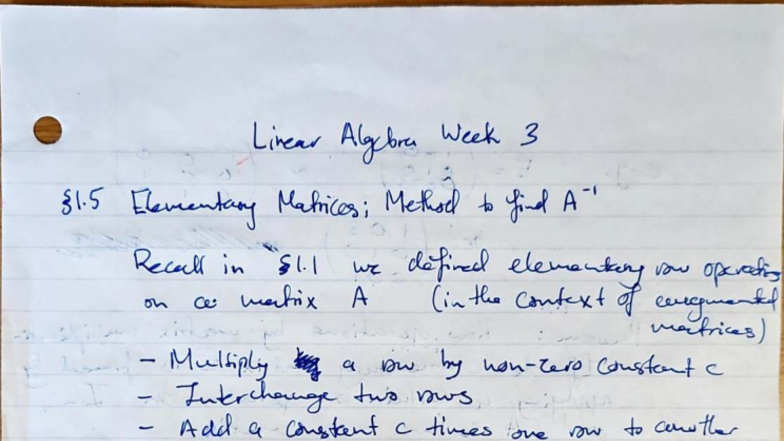 Linear Algebra Week 3
§1.5 Elementary Matrices; Method to find A⁻¹
Recall in §1.1 we defined elementary row operations
on a matrix A (in the context of augmented
matrices)
- Multiply a row by non-zero constant c
- Interchange two rows
- Add a constant c times one row to another